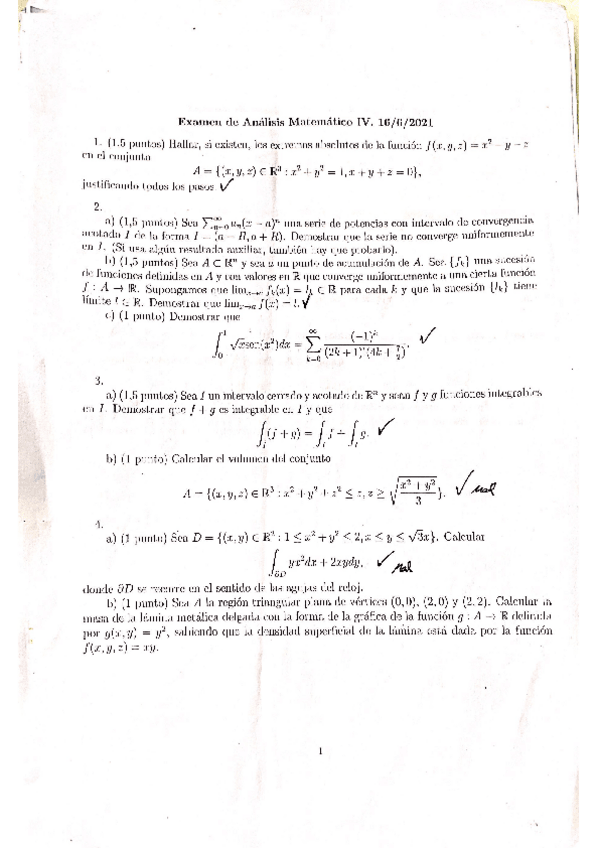 Examen de Análisis Matemático IV. 16/6/2021
1. (1.5 puntos) Hallar, si existen, los extremos absolutos de la función f(x, y, z) = x² − y − z
en el conjunto
A = {(x, y, z) ∈ R³ : x² + y² = 1, x + y + z = 0},
justificando todos los pasos. ✓
2.
a) (1,5 puntos) Sea ∑_{n=0}^{∞} aₙ(x − a)ⁿ una serie de potencias con intervalo de convergencia
acotado I de la forma I = (a − R, a + R). Demostrar que la serie no converge uniformemente
en I. (Si usa algún resultado auxiliar, también hay que probarlo).
b) (1,5 puntos) Sea A ⊂ Rⁿ y sea a un punto de acumulación de A. Sea {fₖ} una sucesión
de funciones definidas en A y con valores en R que converge uniformemente a una cierta función
f : A → R. Supongamos que lim_{x→a} fₖ(x) = lₖ ∈ R para cada k y que la sucesión {lₖ} tiene
límite l ∈ R. Demostrar que lim_{x→a} f(x) = l. ✓
c) (1 punto) Demostrar que
∫₀¹ √x sen(x²)dx = ∑_{k=0}^{∞} (−1)ᵏ / ((2k + 1)!(4k + 7/2)). ✓
3.
a) (1,5 puntos) Sea I un intervalo cerrado y acotado de Rⁿ y sean f y g funciones integrables
en I. Demostrar que f + g es integrable en I y que
∫_I (f + g) = ∫_I f + ∫_I g. ✓
b) (1 punto) Calcular el volumen del conjunto
A = {(x, y, z) ∈ R³ : x² + y² + z² ≤ z, z ≥ √((x² + y²)/3)}. ✓ mal
4.
a) (1 punto) Sea D = {(x, y) ∈ R² : 1 ≤ x² + y² ≤ 2, x ≤ y ≤ √3x}. Calcular
∫_{∂D} yx²dx + 2xydy, ✓ mal
donde ∂D se recorre en el sentido de las agujas del reloj.
b) (1 punto) Sea A la región triangular plana de vértices (0, 0), (2, 0) y (2, 2). Calcular la
masa de la lámina metálica delgada con la forma de la gráfica de la función g : A → R definida
por g(x, y) = y², sabiendo que la densidad superficial de la lámina está dada por la función
f(x, y, z) = xy.
1